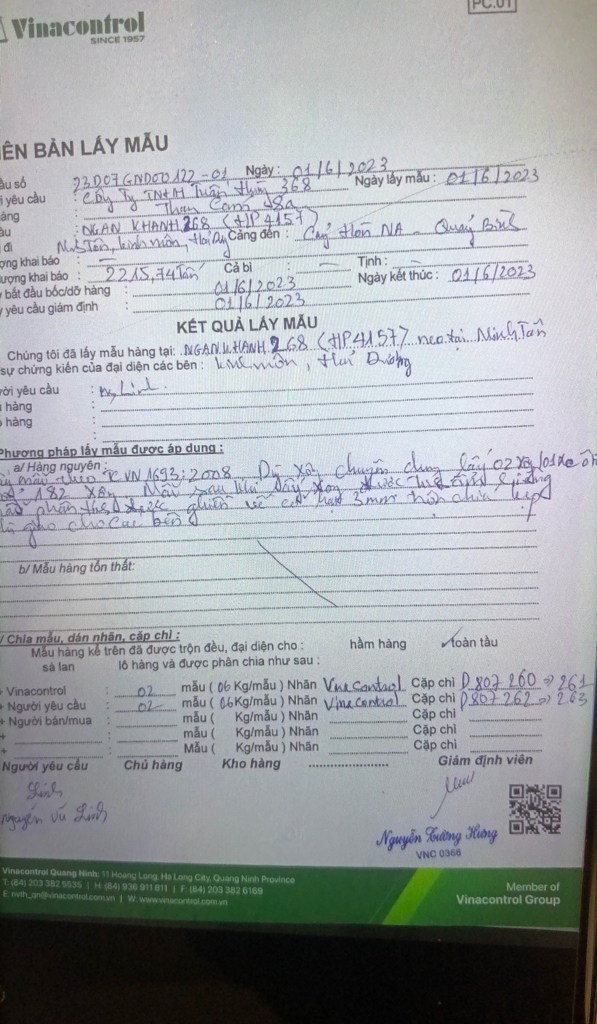 PC.01
Vinacontrol
SINCE 1957
ÊN BẢN LẤY MẪU
ầu số 23D07GND00122-01 Ngày: 01/6/2023
i yêu cầu : Công Ty TNHH Tuấn Hùng 368 Ngày lấy mẫu: 01/6/2023
àng : Than Cám
àu : NGAN KHANH 268 (HP4157)
i đi Minh Tân, kinh môn, Hải Dg Cảng đến : Cảng Hòn NA - Quảng Bình
ợng khai báo : — Cả bì : — Tịnh : —
ượng khai báo : 2215,74 Tấn Ngày kết thúc: 01/6/2023
y bắt đầu bốc/dỡ hàng : 01/6/2023
y yêu cầu giám định : 01/6/2023
KẾT QUẢ LẤY MẪU
Chúng tôi đã lấy mẫu hàng tại: NGAN KHANH 268 (HP4157) neo tại Minh Tân
sự chứng kiến của đại diện các bên : kinh môn, Hải Dương
ười yêu cầu : Mr Linh
hàng :
hàng :
Phương pháp lấy mẫu được áp dụng :
a/ Hàng nguyên :
mẫu theo TCVN 1693:2008 Dụng xẻng chuyên dụng lấy 02 xẻng/01 xe
182 xẻng Mẫu sau khi lấy xong được
phần được nghiền về cỡ hạt 3mm trộn chia
giao cho các bên
b/ Mẫu hàng tổn thất:
/ Chia mẫu, dán nhãn, cặp chì :
Mẫu hàng kể trên đã được trộn đều, đại diện cho : hầm hàng ✓toàn tàu
sà lan lô hàng và được phân chia như sau :
+ Vinacontrol : 02 mẫu ( 06 Kg/mẫu ) Nhãn Vinacontrol Cặp chì D 807 260 => 261
+ Người yêu cầu : 02 mẫu ( 06 Kg/mẫu ) Nhãn Vinacontrol Cặp chì D 807 262 => 263
+ Người bán/mua : mẫu ( Kg/mẫu ) Nhãn Cặp chì
+ : mẫu ( Kg/mẫu ) Nhãn Cặp chì
+ : Mẫu ( Kg/mẫu ) Nhãn Cặp chì
Người yêu cầu Chủ hàng Kho hàng ........................ Giám định viên
Linh
Nguyễn Vũ Linh
Nguyễn Tường Hưng
VNC 0366
Vinacontrol Quang Ninh: 11 Hoang Long, Ha Long City, Quang Ninh Province
T: (84) 203 382 5535 | H: (84) 936 911 811 | F: (84) 203 382 6169
E: nvth_qn@vinacontrol.com.vn | W: www.vinacontrol.com.vn
Member of
Vinacontrol Group